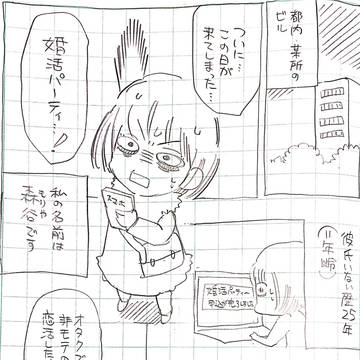 都内・某所の
ビル
ついに…
この日が
来てしまった…
婚活パーティ…!
スマホ
私の名前は
森谷です
もりや
彼氏いない歴25年
(=年齢)
婚活パーティー
オタクで
非モテの
恋活した